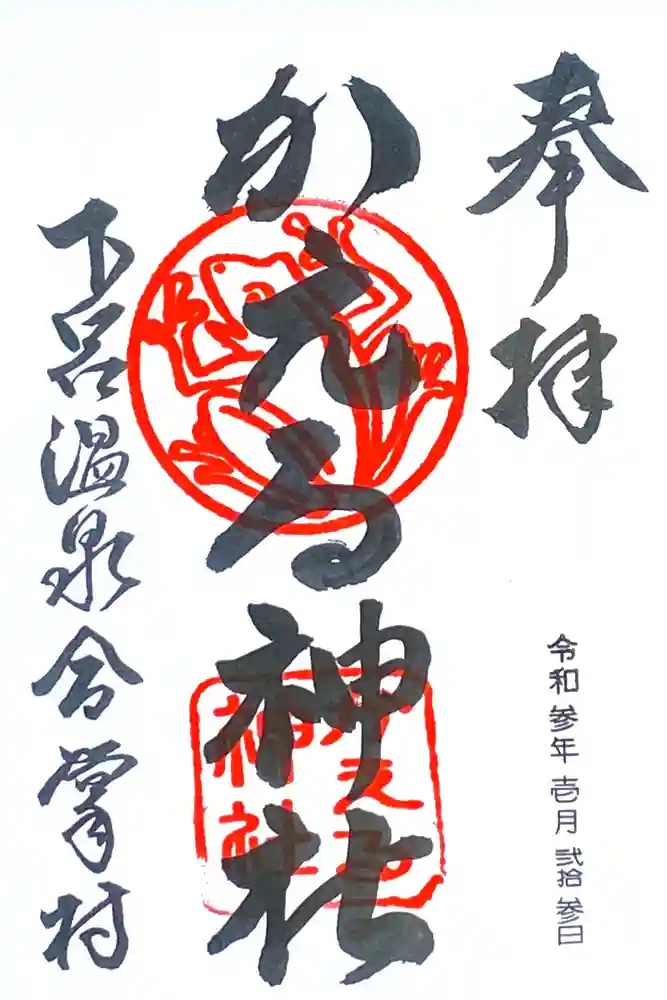 奉拝
令和参年壱月弐拾参日
かえる神社
かえる
神社
下呂温泉合掌村